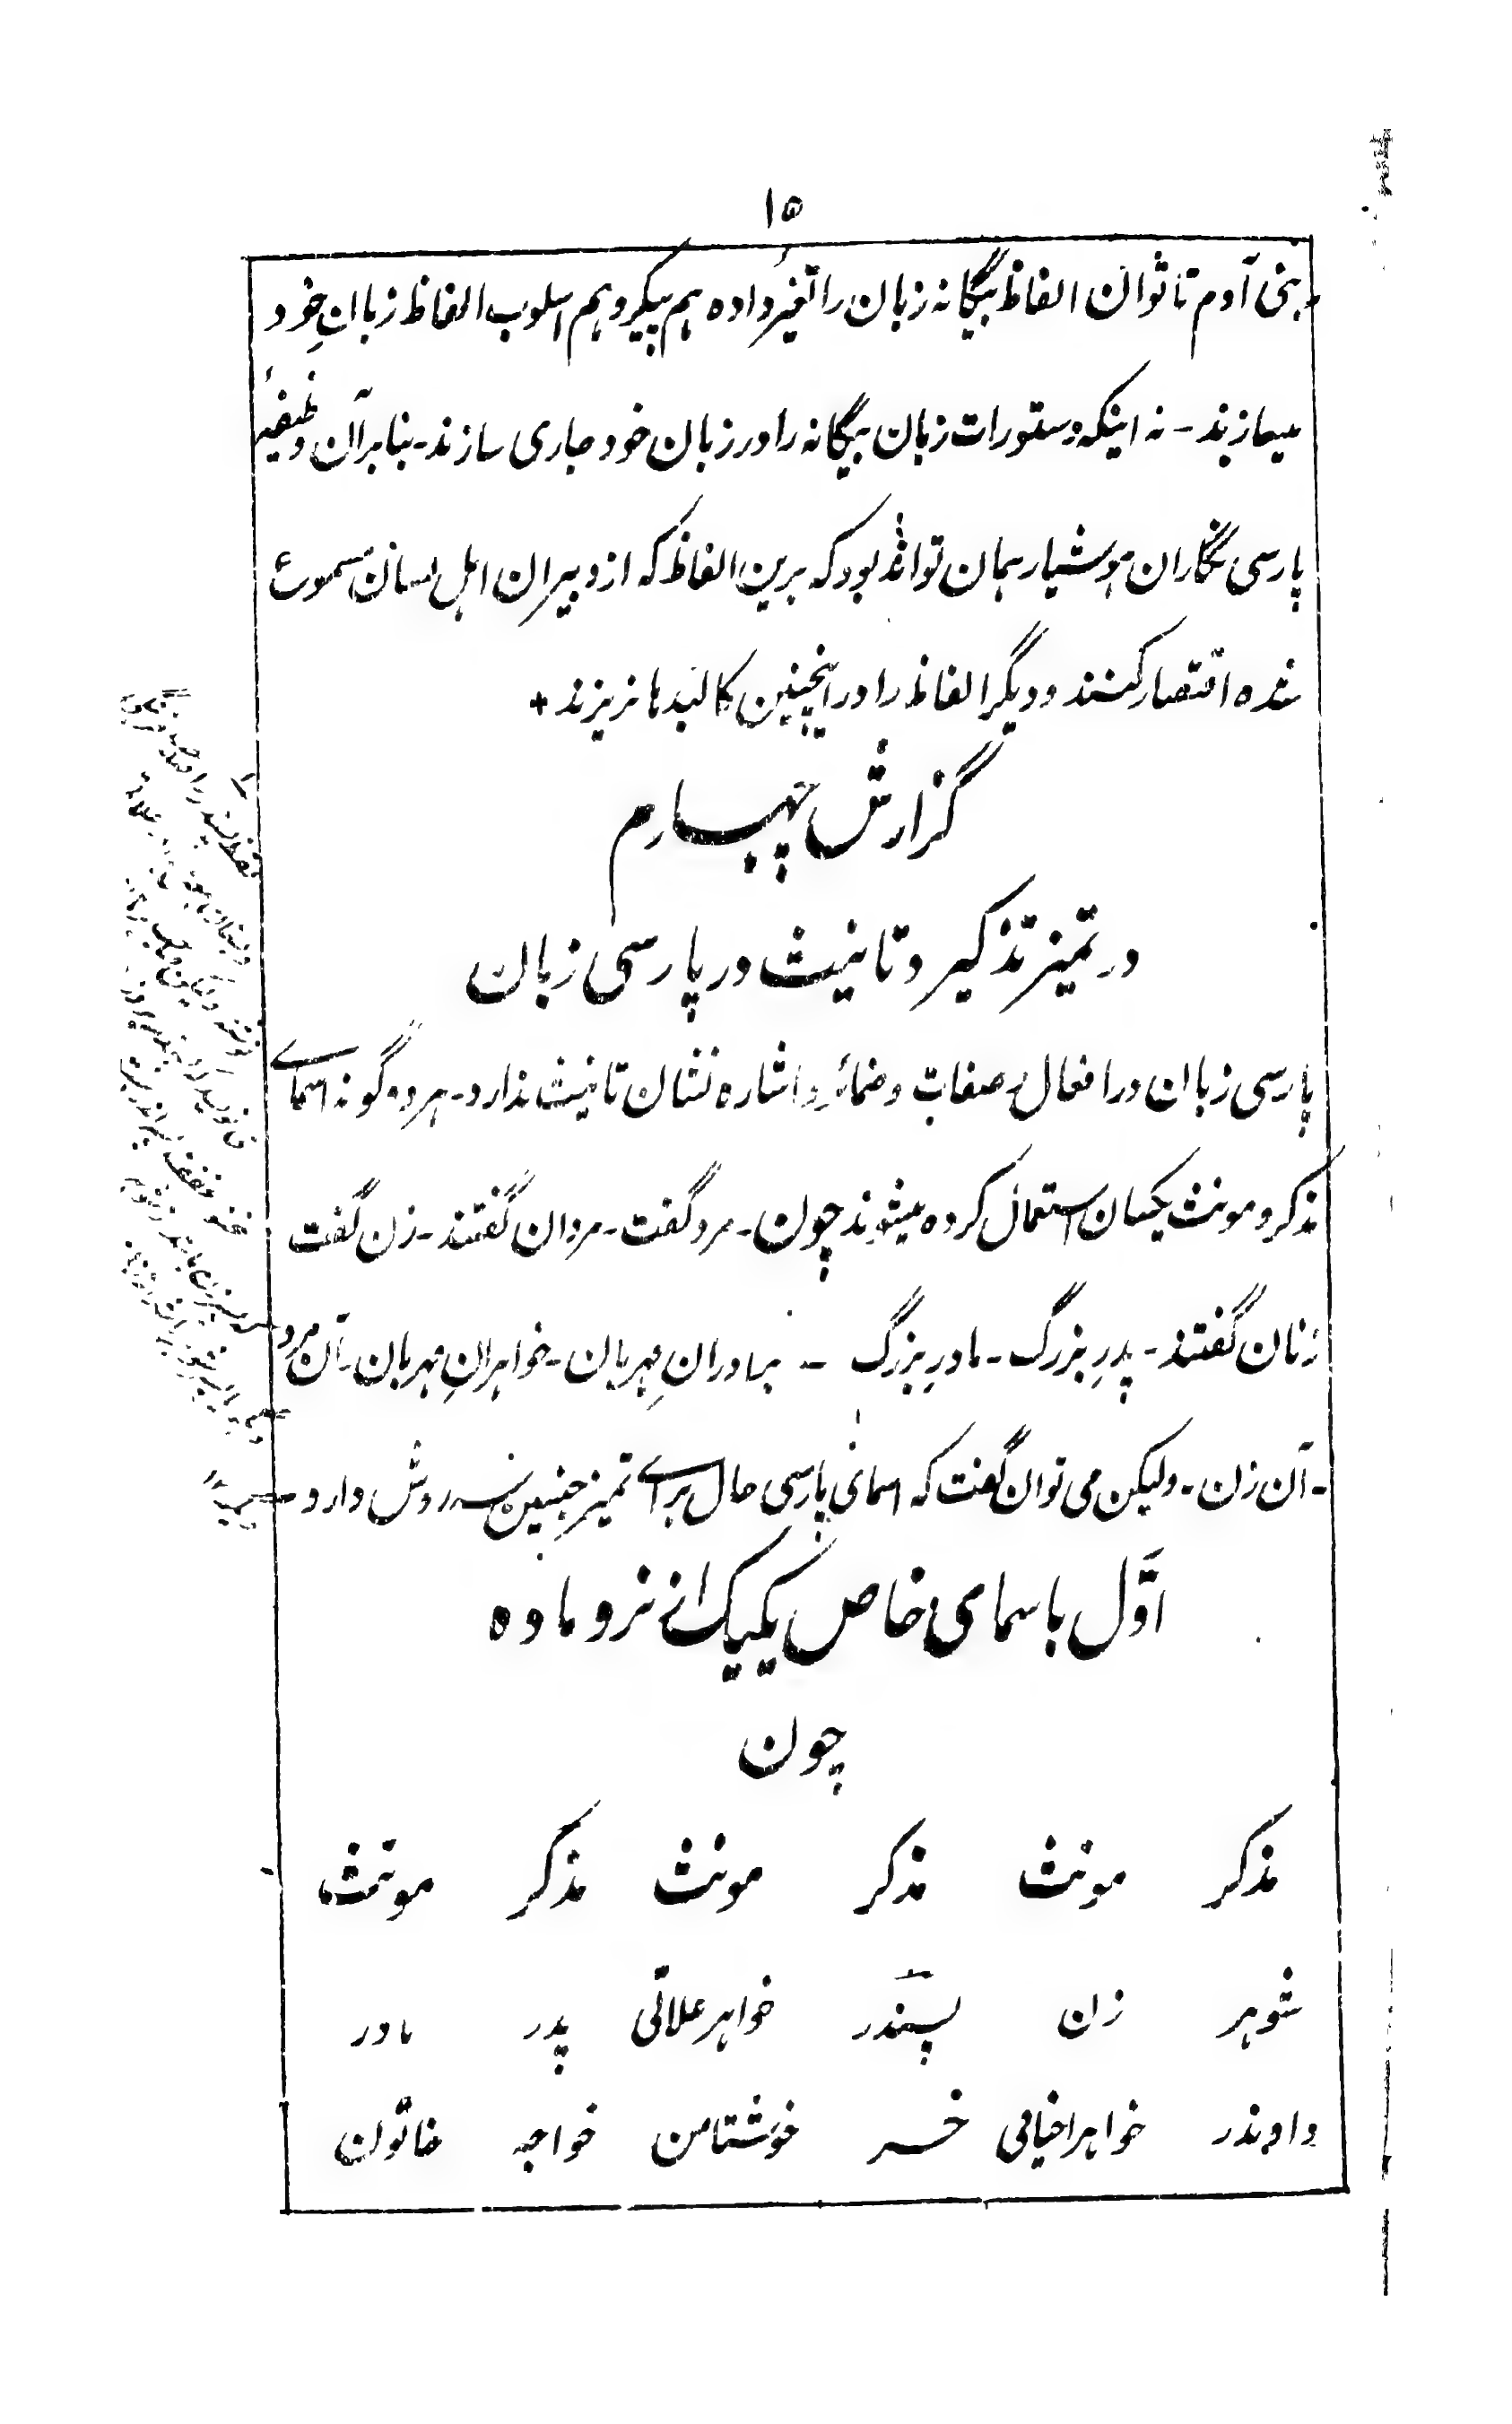 ۱۵
و بنی آدم تا توان الفاظ بیگانه زبان را تغیر داده هم پیکر و هم اسلوب الفاظ زبان خود
میسازند - نه اینکه دستورات زبان بیگانه را در زبان خود جاری سازند - بنا بر آن وظیفهٔ
پارسی نگاران هوشیار همان تواند بود که برین الفاظ که از دبیران اهل لسان مسموع
شده اقتصار کنند و دیگر الفاظ را در اینچنین کالبدها نریزند +
گزارش چهارم
در تمیز تذکیر و تانیث در پارسی زبان
پارسی زبان در افعال و صفات و ضمائر و اشاره نشان تانیث ندارد - هر دو گونه اسمای
مذکر و مونث یکسان استعمال کرده میشوند چون - مرد گفت - مردان گفتند - زن گفت
زنان گفتند - پدرِ بزرگ - مادرِ بزرگ - برادرانِ مهربان - خواهرانِ مهربان - آن مرد
- آن زن - ولیکن می توان گفت که اسمای پارسی حال برای تمیز جنسین سه روش دارد
اوّل باسمای خاص یکیک از نر و ماده
چون
مذکر مونث مذکر مونث مذکر مونث
شوهر زن پسندر خواهر علاتی پدر مادر
دادندر خواهر اخیافی خسر خوشتامن خواجه خاتون